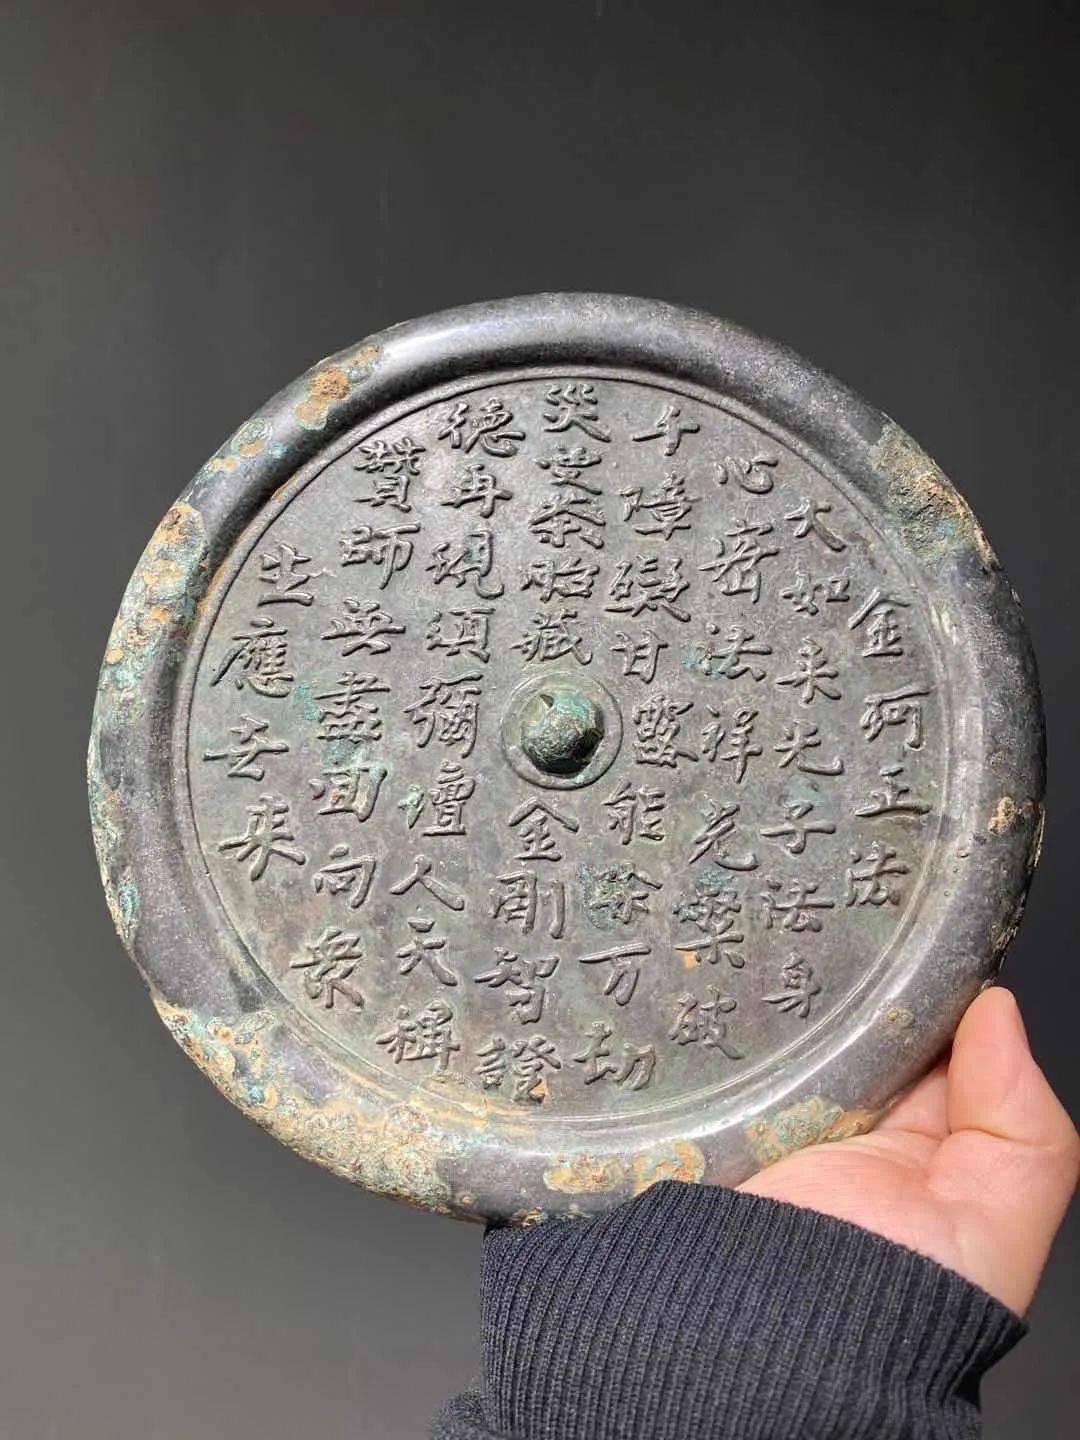 金珂正法
大如来光子法身
心密法祥光粲破
千障變甘能除万劫
災曼荼胎藏金剛智證
德再現須彌壇人天稱
贊師無盡回向衆
生應去来